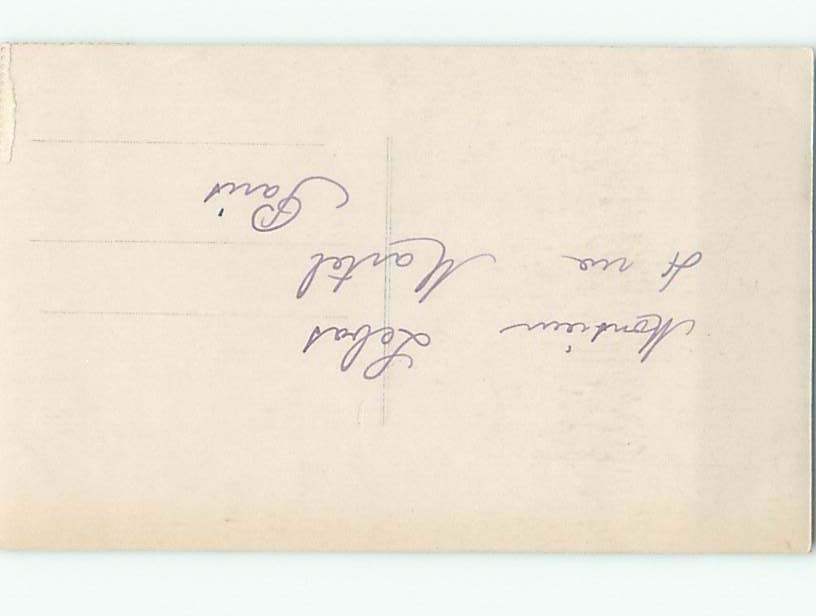 Monsieur Lebas
rue Martel
Paris